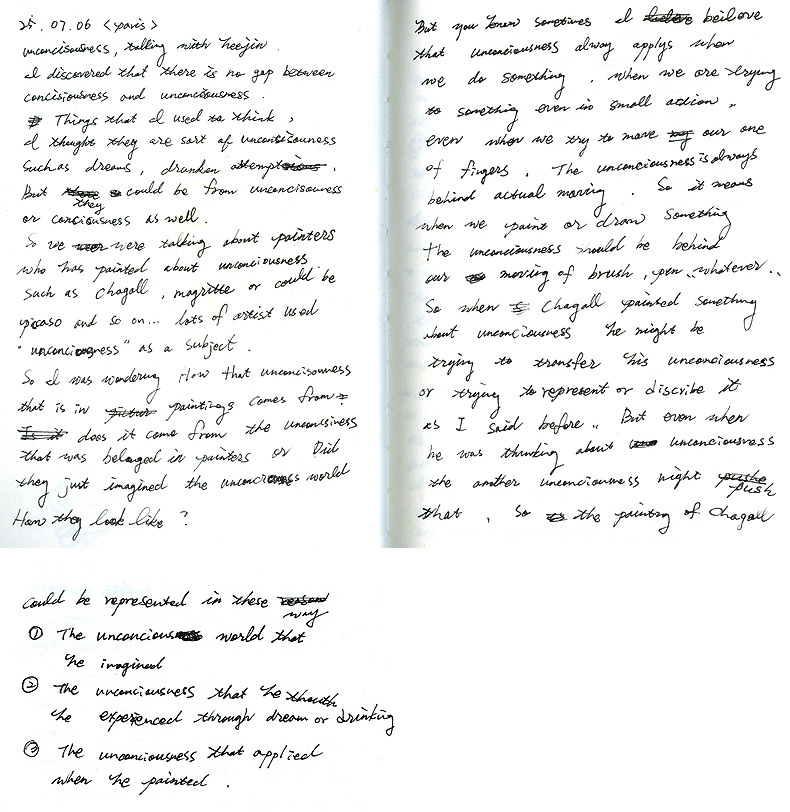 25.07.06 <paris>
unconcisousness, talking with heejin.
I discovered that there is no gap between
concisiousness and unconciousness.
Things that I used to think,
I thought they are sort of unconsisousness
such as dreams, drunken attempt.
But they could be from unconcisousness
or conciousness as well.
So we were talking about painters
who has painted about unconciousness
such as Chagall, magritte or could be
picaso and so on... lots of artist used
"unconciousness" as a subject.
So I was wondering How that unconcisousness
that is in paintings comes from?
does it come from the unconsiness
that was belonged in painters or Did
they just imagined the unconcious world
How they look like?
But you know sometimes I beilove
that unconciousness alway applys when
we do something. when we are trying
to something even in small action..
even when we try to move our one
of fingers. The unconciousness is always
behind actual moving. So it means
when we paint or draw something
the unconciousness should be behind
our moving of brush, pen.. whatever..
So when Chagall painted something
about unconciousness he might be
trying to transfer his unconciousness
or trying to represent or discribe it
as I said before.. But even when
he was thinking about unconciousness
the another unconciousness might push
that. So the painting of Chagall
could be represented in these way
① The unconcious world that
he imagined
② The unconciousness that he
he experienced through dream or drinking
③ The unconciousness that applied
when he painted.